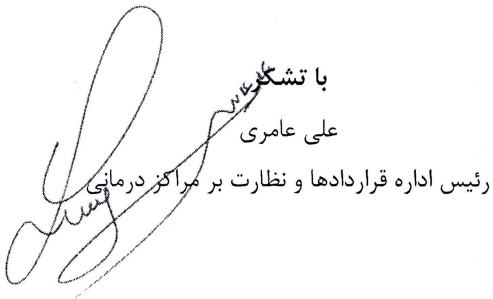 با تشکر
علی عامری
رئیس اداره قراردادها و نظارت بر مراکز درمانی